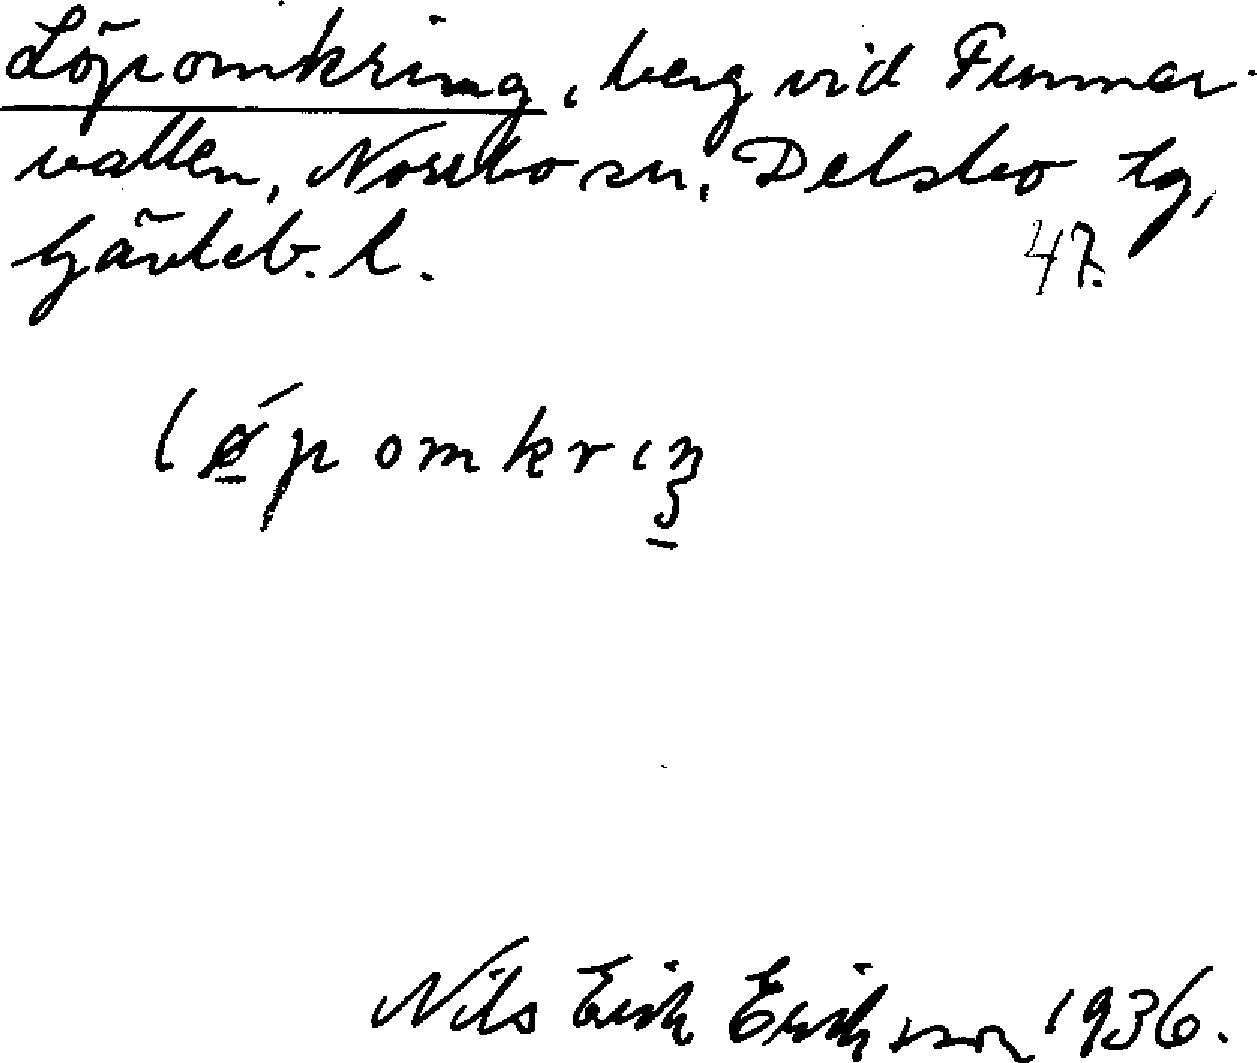 Löpomkring, berg vid Finnar-
vallen, Norrbo sn, Delsbo tg,
Gävleb. l.
47.
lǿ̲pomkrıŋ̲
Nils Erik Eriksson 1936.